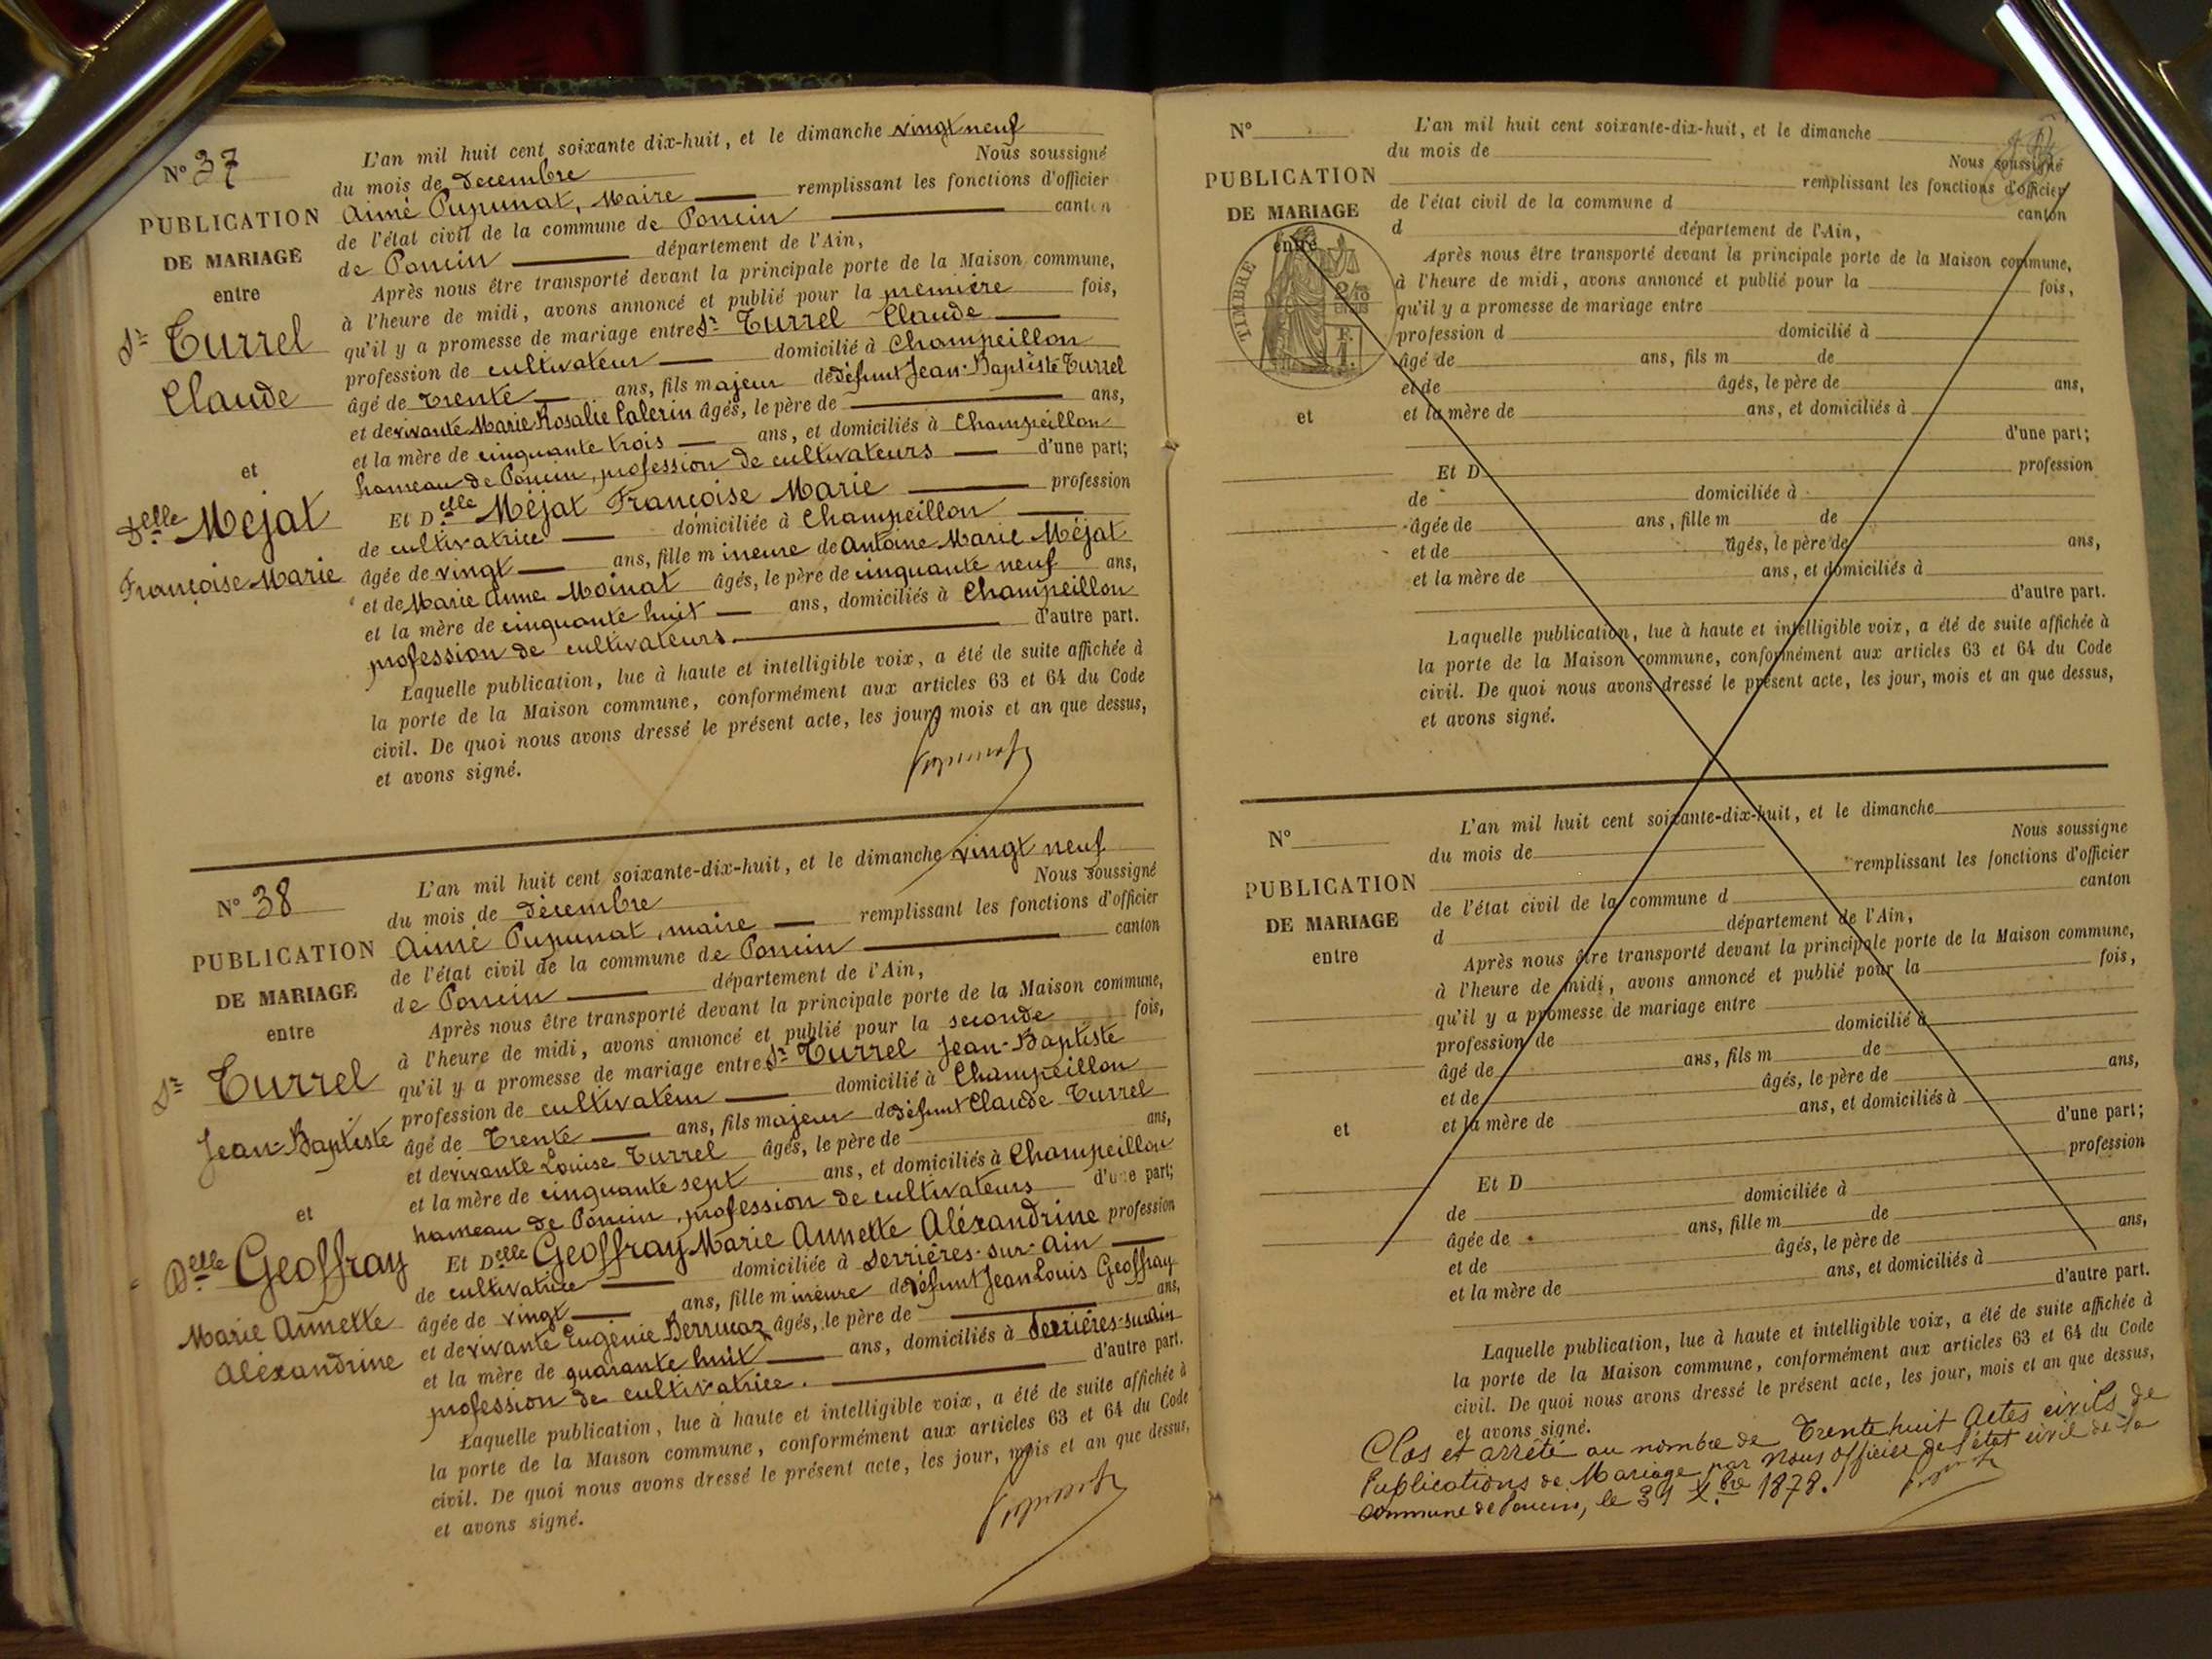 N° 37
PUBLICATION
DE MARIAGE
entre
Sr Turrel
Claude
et
Delle Méjat
Françoise Marie
L'an mil huit cent soixante dix-huit, et le dimanche vingt neuf
du mois de décembre Nous soussigné
Aimé Pupunat, Maire remplissant les fonctions d'officier
de l'état civil de la commune de Poncin canton
de Poncin département de l'Ain,
Après nous être transporté devant la principale porte de la Maison commune,
à l'heure de midi, avons annoncé et publié pour la première fois,
qu'il y a promesse de mariage entre Sr Turrel Claude
profession de cultivateur domicilié à Champeillon
âgé de trente ans, fils majeur de défunt Jean-Baptiste Turrel
et de vivante Marie Rosalie Calerin âgés, le père de ans,
et la mère de cinquante trois ans, et domiciliés à Champeillon
hameau de Poncin, profession de cultivateurs d'une part;
Et Delle Méjat Françoise Marie profession
de cultivatrice domiciliée à Champeillon
âgée de vingt ans, fille mineure de Antoine Marie Méjat
et de Marie Anne Moinat âgés, le père de cinquante neuf ans,
et la mère de cinquante huit ans, domiciliés à Champeillon
profession de cultivateurs. d'autre part.
Laquelle publication, lue à haute et intelligible voix, a été de suite affichée à
la porte de la Maison commune, conformément aux articles 63 et 64 du Code
civil. De quoi nous avons dressé le présent acte, les jour, mois et an que dessus,
et avons signé.
Pupunat
N° 38
PUBLICATION
DE MARIAGE
entre
Sr Turrel
Jean-Baptiste
et
Delle Geoffray
Marie Annette
Aléxandrine
L'an mil huit cent soixante-dix-huit, et le dimanche vingt neuf
du mois de décembre Nous soussigné
Aimé Pupunat, maire remplissant les fonctions d'officier
de l'état civil de la commune de Poncin canton
de Poncin département de l'Ain,
Après nous être transporté devant la principale porte de la Maison commune,
à l'heure de midi, avons annoncé et publié pour la seconde fois,
qu'il y a promesse de mariage entre Sr Turrel Jean-Baptiste
profession de cultivateur domicilié à Champeillon
âgé de Trente ans, fils majeur de défunt Claude Turrel
et de vivante Louise Turrel âgés, le père de ans,
et la mère de cinquante sept ans, et domiciliés à Champeillon
hameau de Poncin, profession de cultivateurs d'une part;
Et Delle Geoffray Marie Annette Aléxandrine profession
de cultivatrice domiciliée à Serrières-sur-Ain
âgée de vingt ans, fille mineure de défunt Jean Louis Geoffray
et de vivante Eugénie Berrucaz âgés, le père de ans,
et la mère de quarante huit ans, domiciliés à Serrières-sur-Ain
profession de cultivatrice. d'autre part.
Laquelle publication, lue à haute et intelligible voix, a été de suite affichée à
la porte de la Maison commune, conformément aux articles 63 et 64 du Code
civil. De quoi nous avons dressé le présent acte, les jour, mois et an que dessus,
et avons signé.
Pupunat
N°
PUBLICATION
DE MARIAGE
entre
TIMBRE
2/10
EN SUS
F.
1.
et
L'an mil huit cent soixante-dix-huit, et le dimanche
du mois de Nous soussigné
remplissant les fonctions d'officier
de l'état civil de la commune d canton
d département de l'Ain,
Après nous être transporté devant la principale porte de la Maison commune,
à l'heure de midi, avons annoncé et publié pour la fois,
qu'il y a promesse de mariage entre
profession d domicilié à
âgé de ans, fils m de
et de âgés, le père de ans,
et la mère de ans, et domiciliés à
d'une part;
Et D profession
de domiciliée à
âgée de ans, fille m de
et de âgés, le père de ans,
et la mère de ans, et domiciliés à
d'autre part.
Laquelle publication, lue à haute et intelligible voix, a été de suite affichée à
la porte de la Maison commune, conformément aux articles 63 et 64 du Code
civil. De quoi nous avons dressé le présent acte, les jour, mois et an que dessus,
et avons signé.
N°
PUBLICATION
DE MARIAGE
entre
et
L'an mil huit cent soixante-dix-huit, et le dimanche
du mois de Nous soussigné
remplissant les fonctions d'officier
de l'état civil de la commune d canton
d département de l'Ain,
Après nous être transporté devant la principale porte de la Maison commune,
à l'heure de midi, avons annoncé et publié pour la fois,
qu'il y a promesse de mariage entre
profession de domicilié à
âgé de ans, fils m de
et de âgés, le père de ans,
et la mère de ans, et domiciliés à
d'une part;
Et D profession
de domiciliée à
âgée de ans, fille m de
et de âgés, le père de ans,
et la mère de ans, et domiciliés à
d'autre part.
Laquelle publication, lue à haute et intelligible voix, a été de suite affichée à
la porte de la Maison commune, conformément aux articles 63 et 64 du Code
civil. De quoi nous avons dressé le présent acte, les jour, mois et an que dessus,
et avons signé.
Clos et arrêté au nombre de Trente huit Actes civils de
Publications de Mariage par Nous officier de l'état civil de la
commune de Poncin, le 31 Xbre 1878.
Pupunat